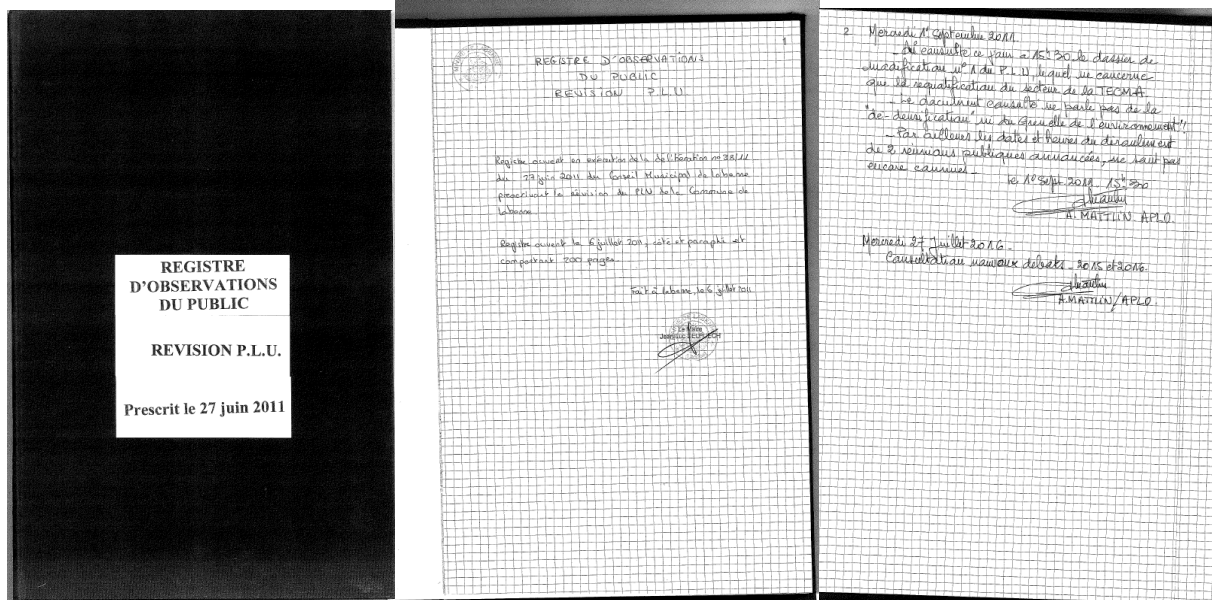 REGISTRE
D'OBSERVATIONS
DU PUBLIC
REVISION P.L.U.
Prescrit le 27 juin 2011
1
REGISTRE D'OBSERVATIONS
DU PUBLIC
REVISION P.L.U.
Registre ouvert en exécution de la délibération no 38/11
du 27 juin 2011 du Conseil Municipal de Labenne
prescrivant la révision du PLU de la Commune de
Labenne.
Registre ouvert le 6 juillet 2011, côté et paraphé et
comportant 200 pages.
Fait à Labenne, le 6 juillet 2011
Le Maire
2 Mercredi 1er Septembre 2011
- Ai consulté ce jour à 15h30, le dossier de
modification n° 1 du P.L.U, lequel ne concerne
que la requalification du secteur de la TECMA.
- Le document consulté ne parle pas de la
"dé-densification" ni du Grenelle de l'environnement"!
- Par ailleurs les dates et heures du déroulement
de 2 réunions publiques annoncées, ne sont pas
encore connues.
le 1er Sept. 2011 - 15h30
A. MATTLIN APLO.
Mercredi 27 Juillet 2016.
Consultation nouveaux débats - 2015 et 2016.
A.MATTLIN/APLO.